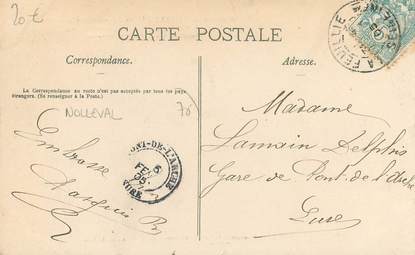 20 €
CARTE POSTALE
Correspondance.
Adresse.
La Correspondance au recto n'est pas acceptée par tous les pays
étrangers. (Se renseigner à la Poste.)
NOLLEVAL
76
LA FEUILLIE
PONT-DE-L'ARCHE
EURE
Madame
Lamain Delphis
Gare de Pont de l'Arche
Eure